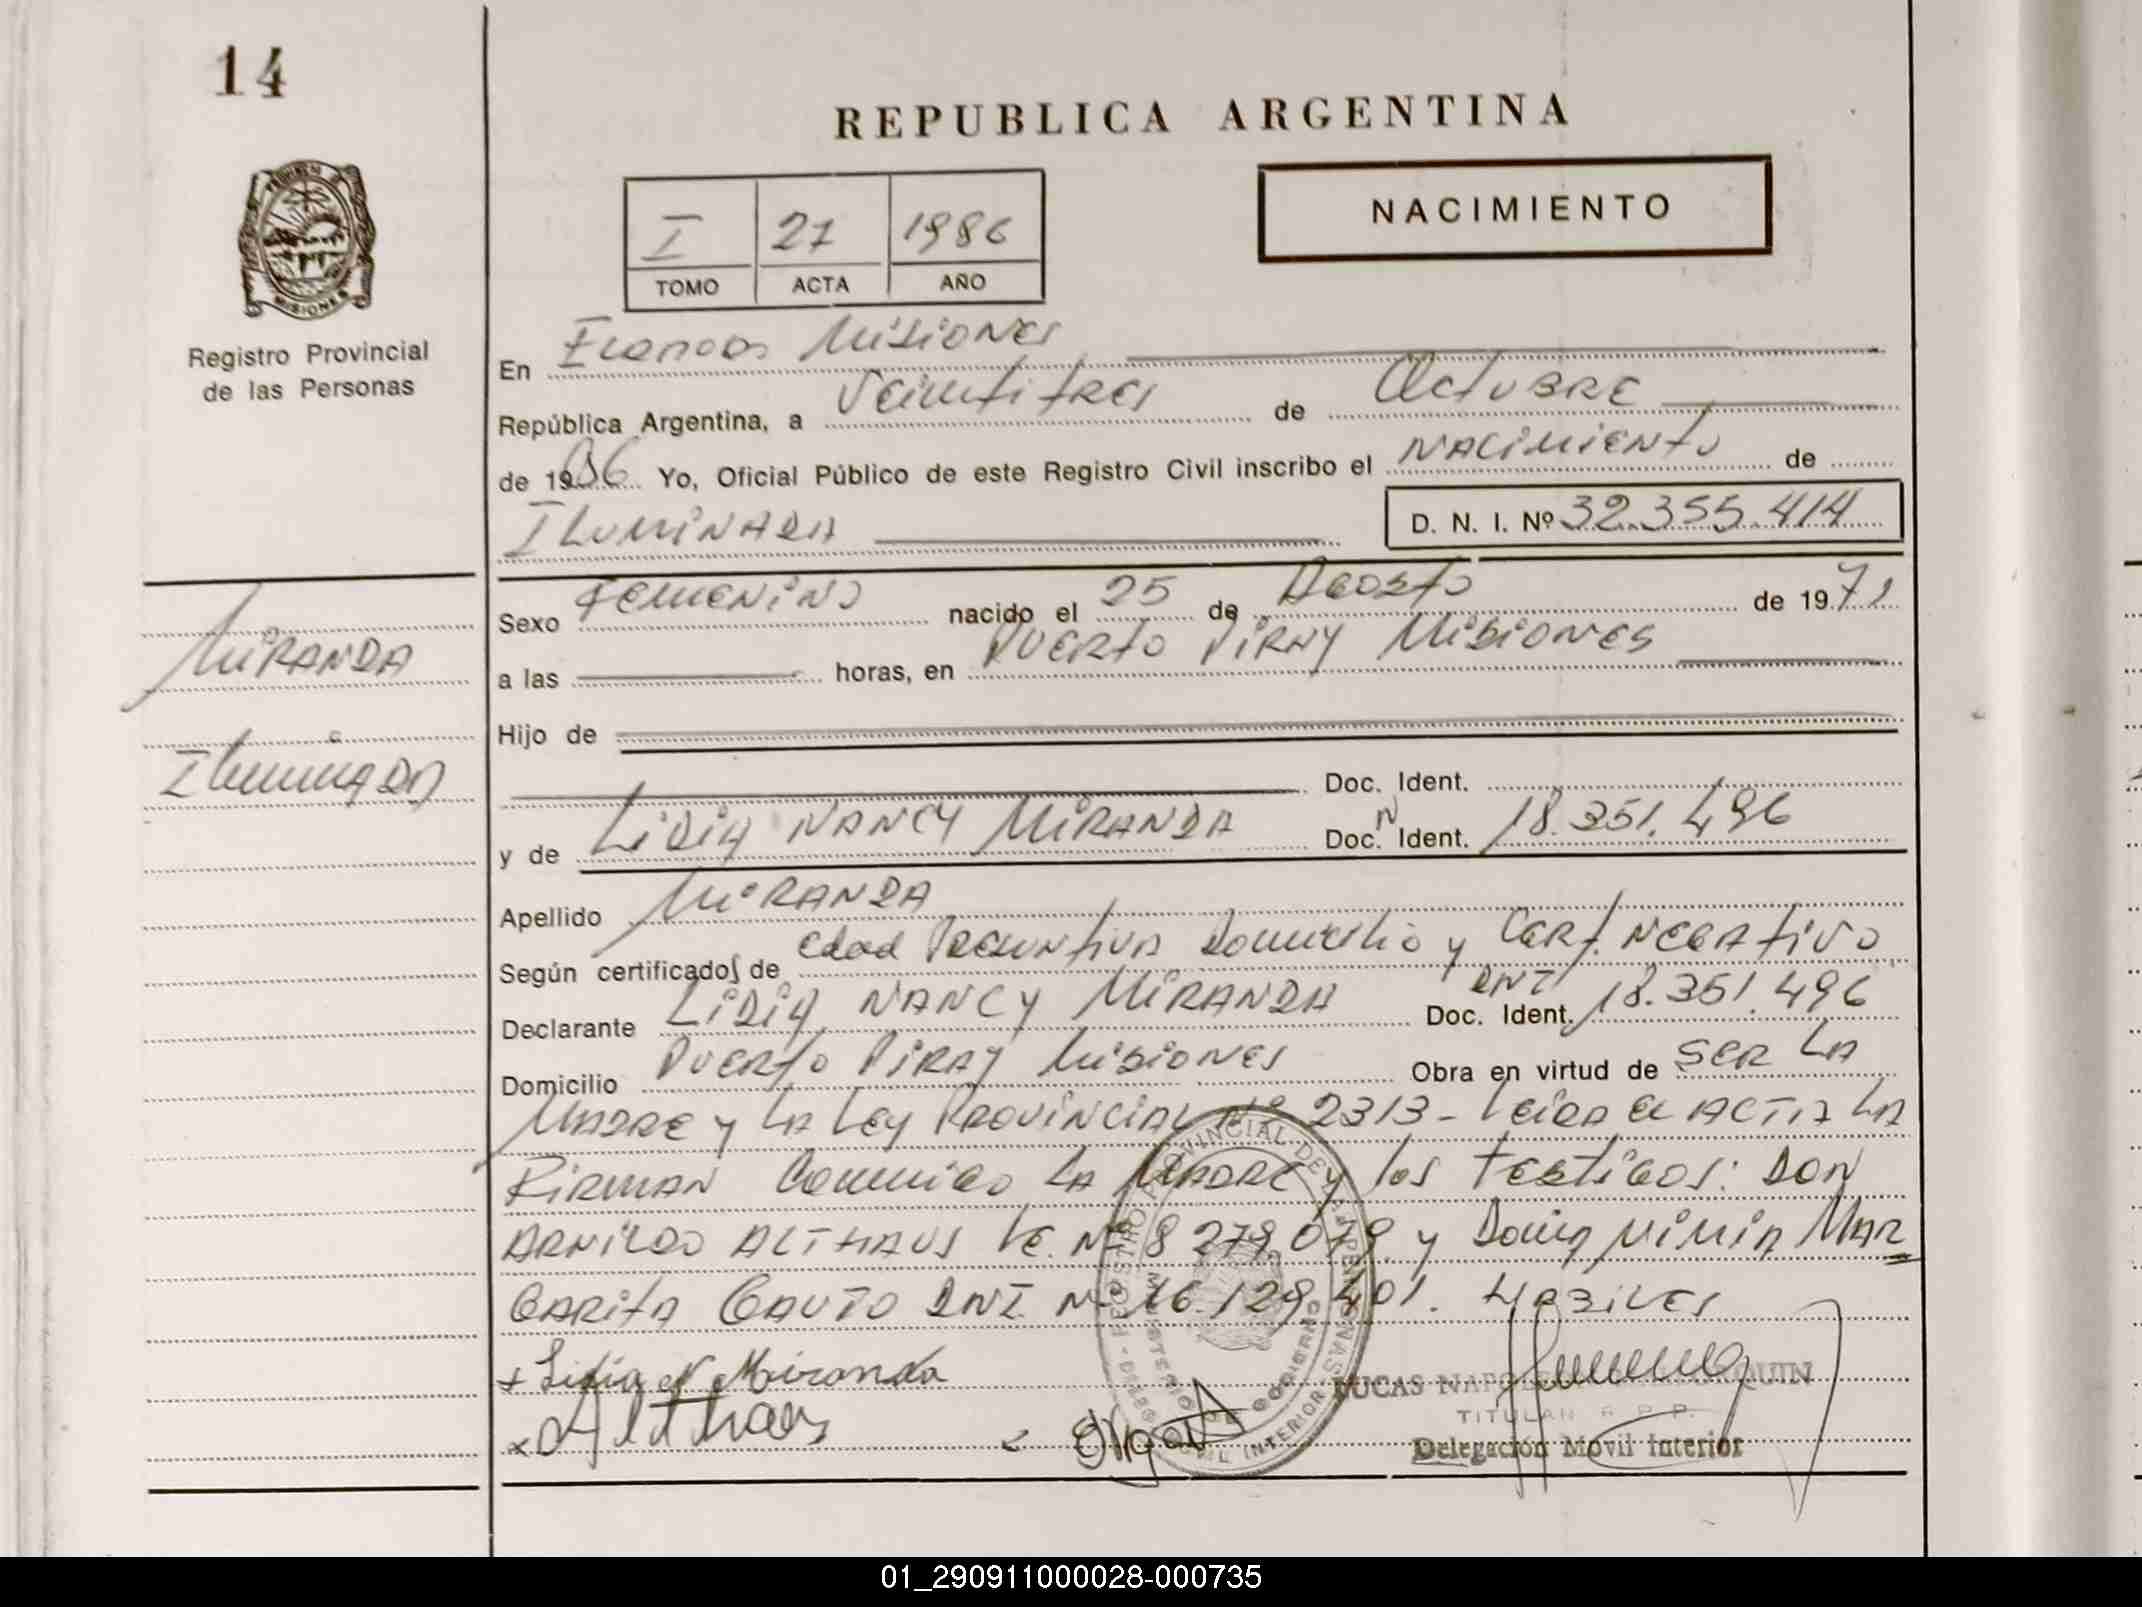 14
REPUBLICA ARGENTINA
NACIMIENTO
I 27 1986
TOMO ACTA AÑO
PROVINCIA MISIONES
Registro Provincial
de las Personas
En Misiones
República Argentina, a Veintitres de Octubre
de 1986 Yo, Oficial Público de este Registro Civil inscribo el NACIMIENTO de
ILUMINADA D. N. I. Nº 32.355.414
Sexo FEMENINO nacido el 25 de Agosto de 1971
MIRANDA
a las horas, en PUERTO PIRAY MISIONES
Hijo de
Iluminada
Doc. Ident.
y de LIDIA NANCY MIRANDA Doc. N Ident. 18.351.496
Apellido MIRANDA
Según certificados de edad Presuntiva Domicilio y Cert. NEGATIVO
Declarante LIDIA NANCY MIRANDA DNI Doc. Ident. 18.351.496
Domicilio PUERTO PIRAY MISIONES Obra en virtud de SER LA
MADRE y LA LEY PROVINCIAL Nº 2313 - Leida el ACTA LA
FIRMAN Conmigo LA MADRE y los Testigos: DON
ARNILDO ALTHAUS LE. Nº 8 279.079 y Doña MIRIA MAR
GARITA GAUTO DNI. Nº 16.129.401. HABILES
+ Lidia N Miranda
x Althaus
LUCAS QUIN
TITULAR R.P.P.
Delegación Movil Interior
REGISTRO PROVINCIAL DE LAS PERSONAS
MINISTERIO DE GOBIERNO
01_290911000028-000735